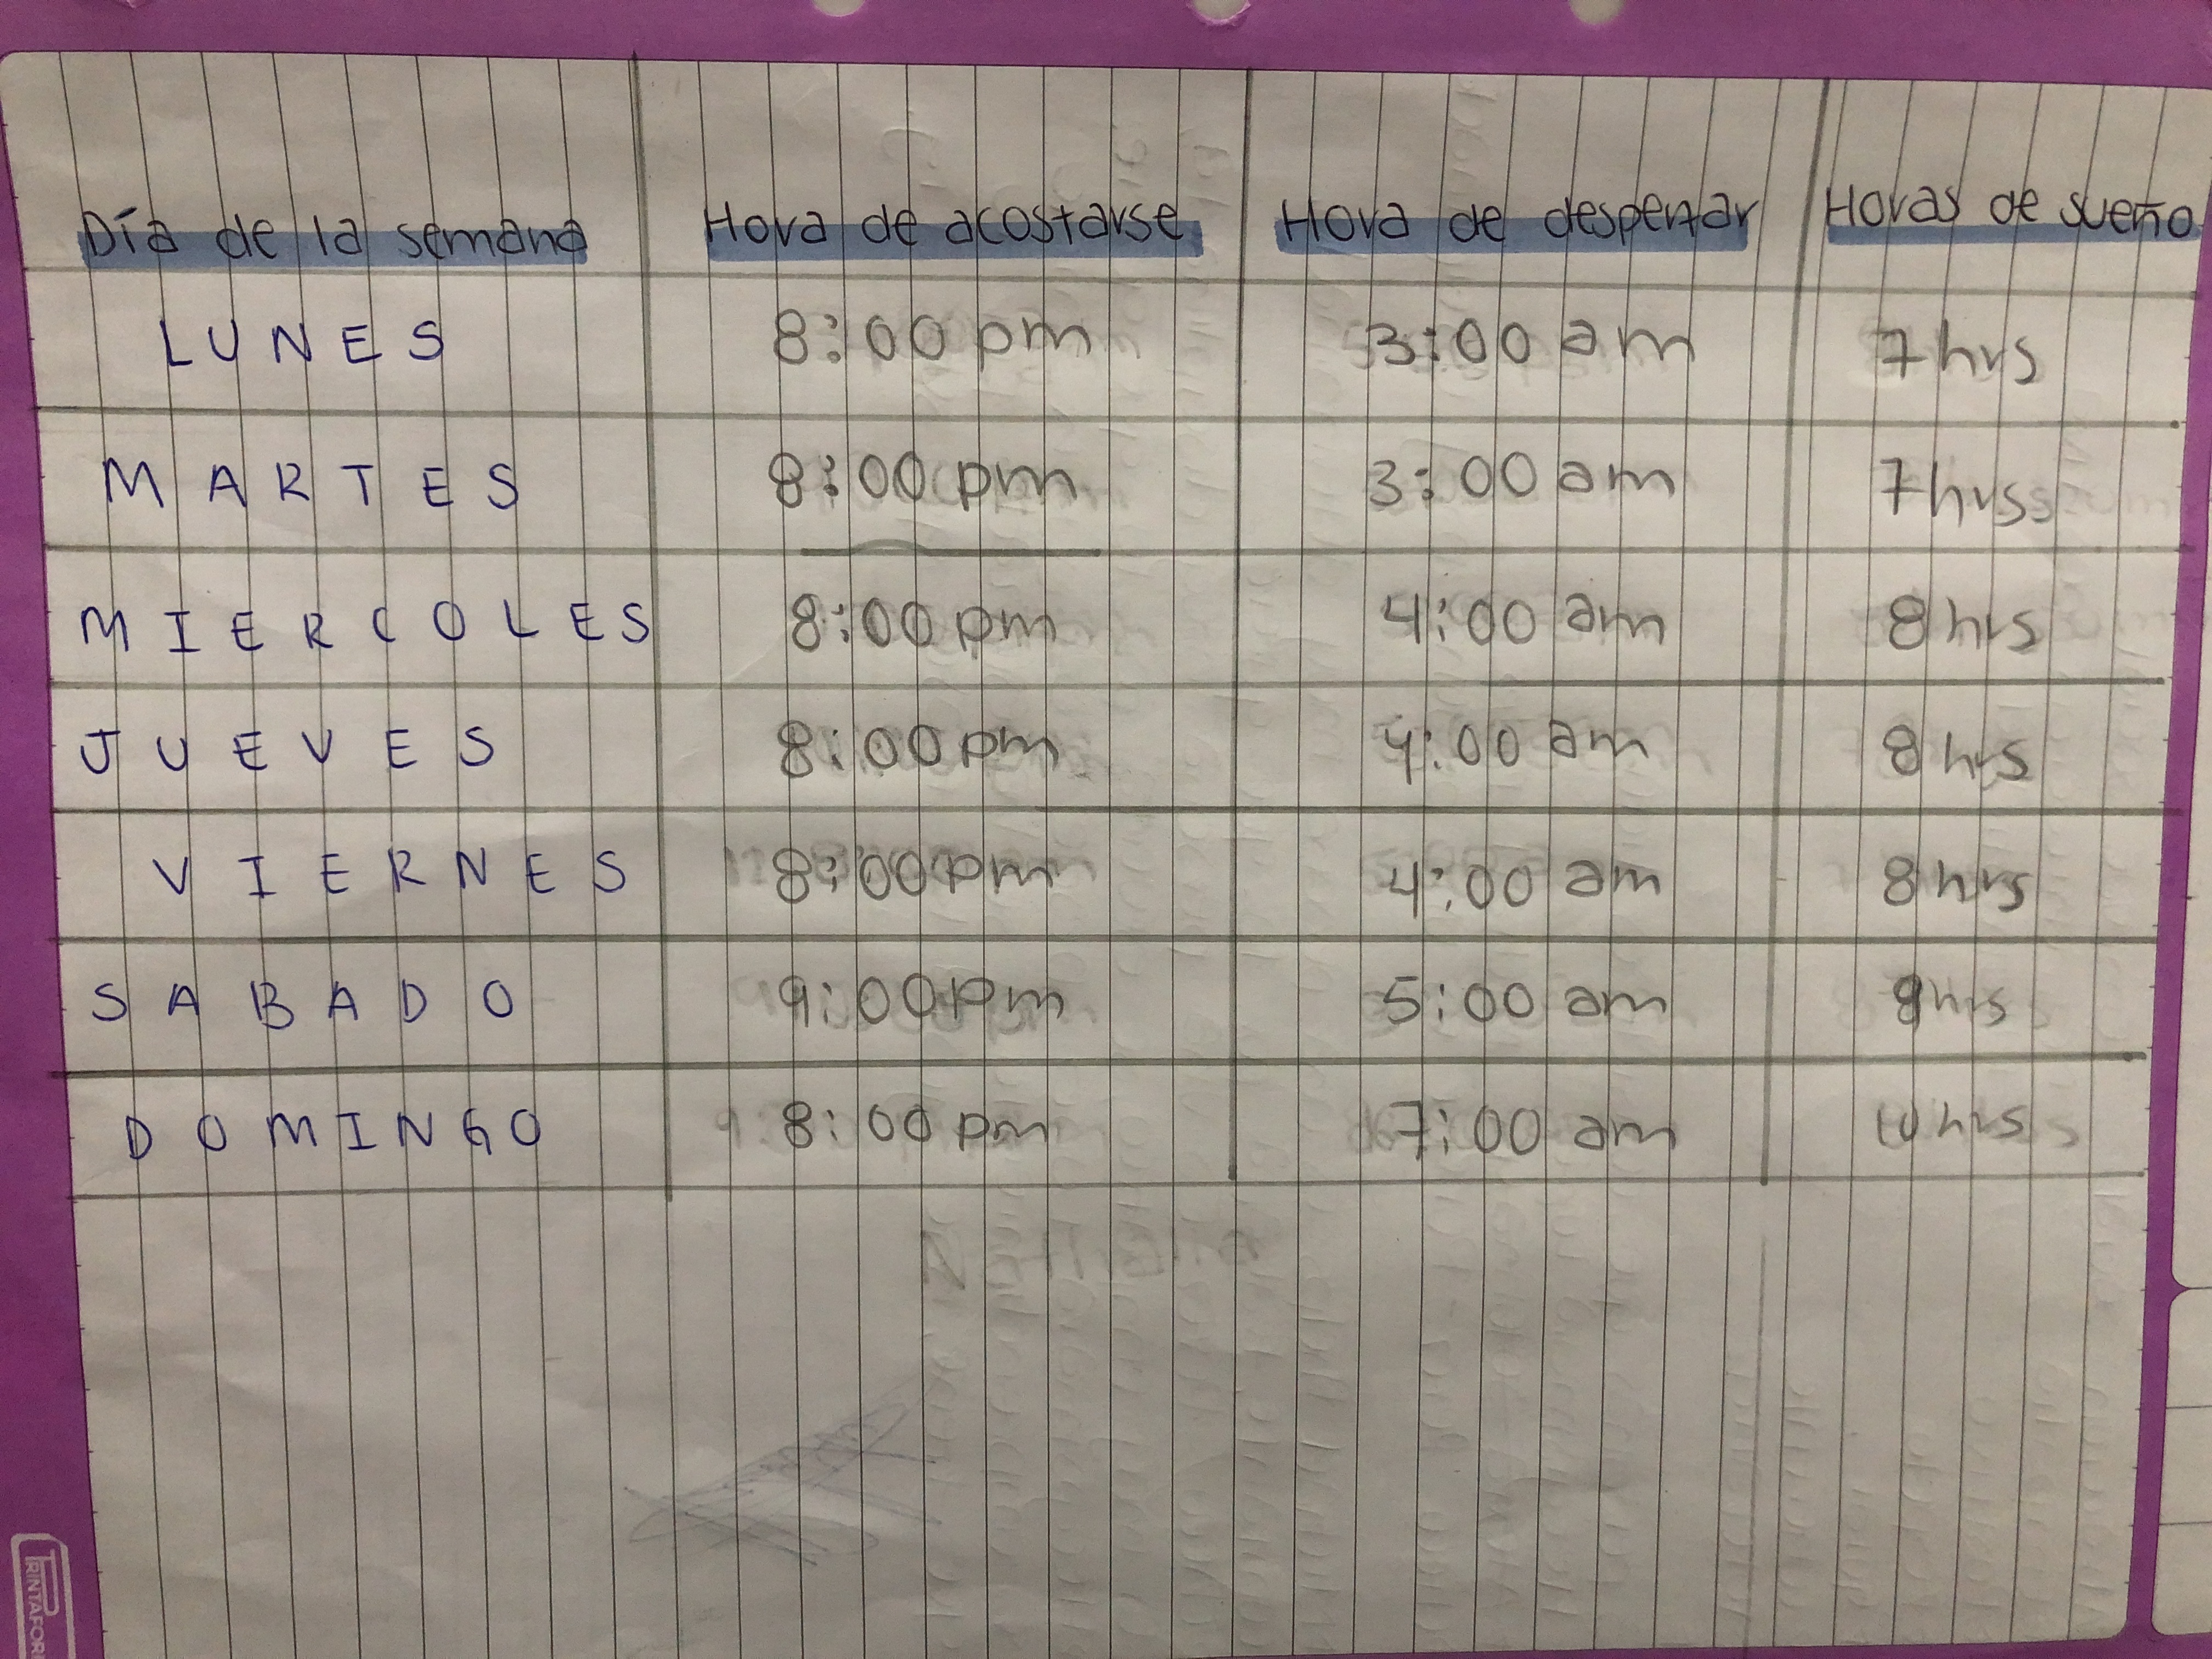 Día de la semana Hora de acostarse Hora de despertar Horas de sueño
LUNES 8:00 pm 3:00 am 7 hrs
MARTES 8:00 pm 3:00 am 7 hrs
MIERCOLES 8:00 pm 4:00 am 8 hrs
JUEVES 8:00 pm 4:00 am 8 hrs
VIERNES 8:00 pm 4:00 am 8 hrs
SABADO 9:00 pm 5:00 am hrs
DOMINGO 8:00 pm 7:00 am 10 hrs